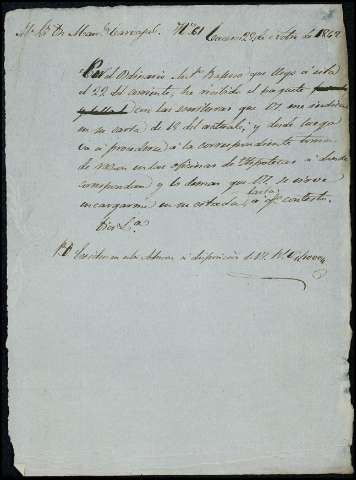 Mr. Dr. Man.l Carvajal. Nº 61 Caceres 29 de octre de 1849
Por el Ordinario Ant.o Rasero que llego á esta
el 22 del corriente, he recibido el paquete
con las escrituras que VE. me indica
en su carta de 18 del actual; y desde luego
va á procederse á la correspondiente toma
de razon en las oficinas de Hipotecas á donde
correspondan y lo demas que VE. se sirve
encargarme en su citada carta á q.e contesto.
Dios L.a
P.D. á disposicion de VE.